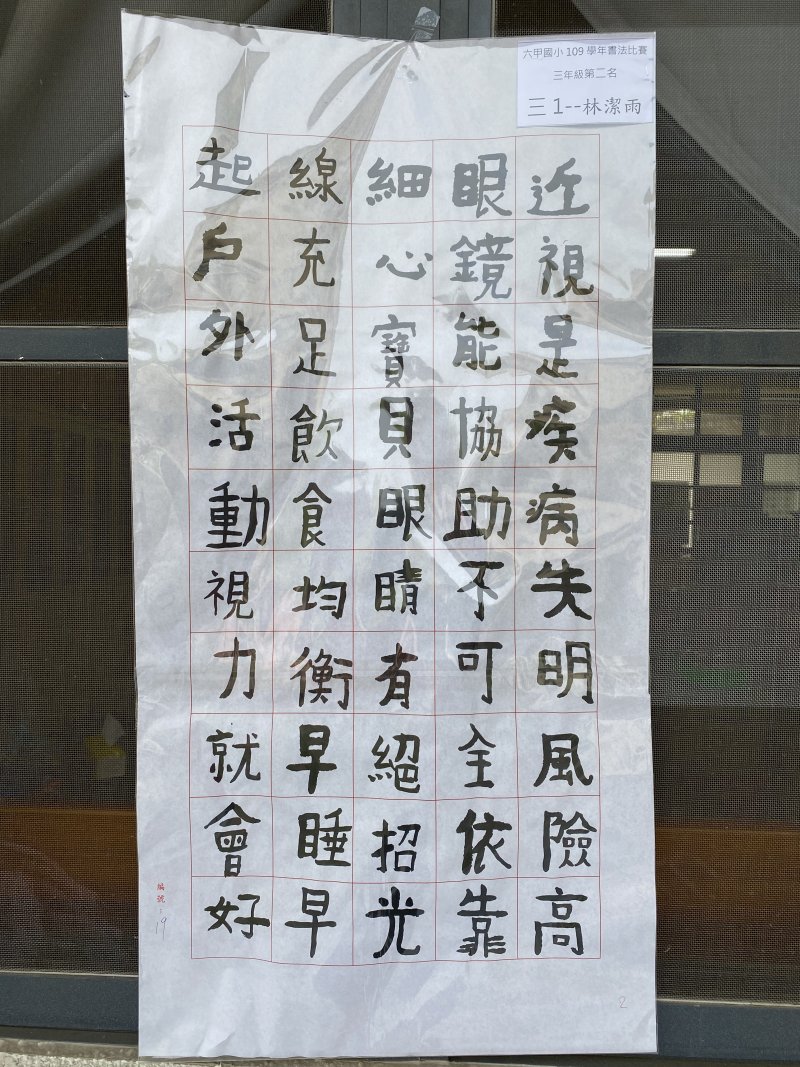 六甲國小 109 學年書法比賽
三年級第二名
三 1--林潔雨
近視是疾病失明風險高
眼鏡能協助不可全依靠
細心寶貝眼睛有絕招光
線充足飲食均衡早睡早
起戶外活動視力就會好
編號：19
2